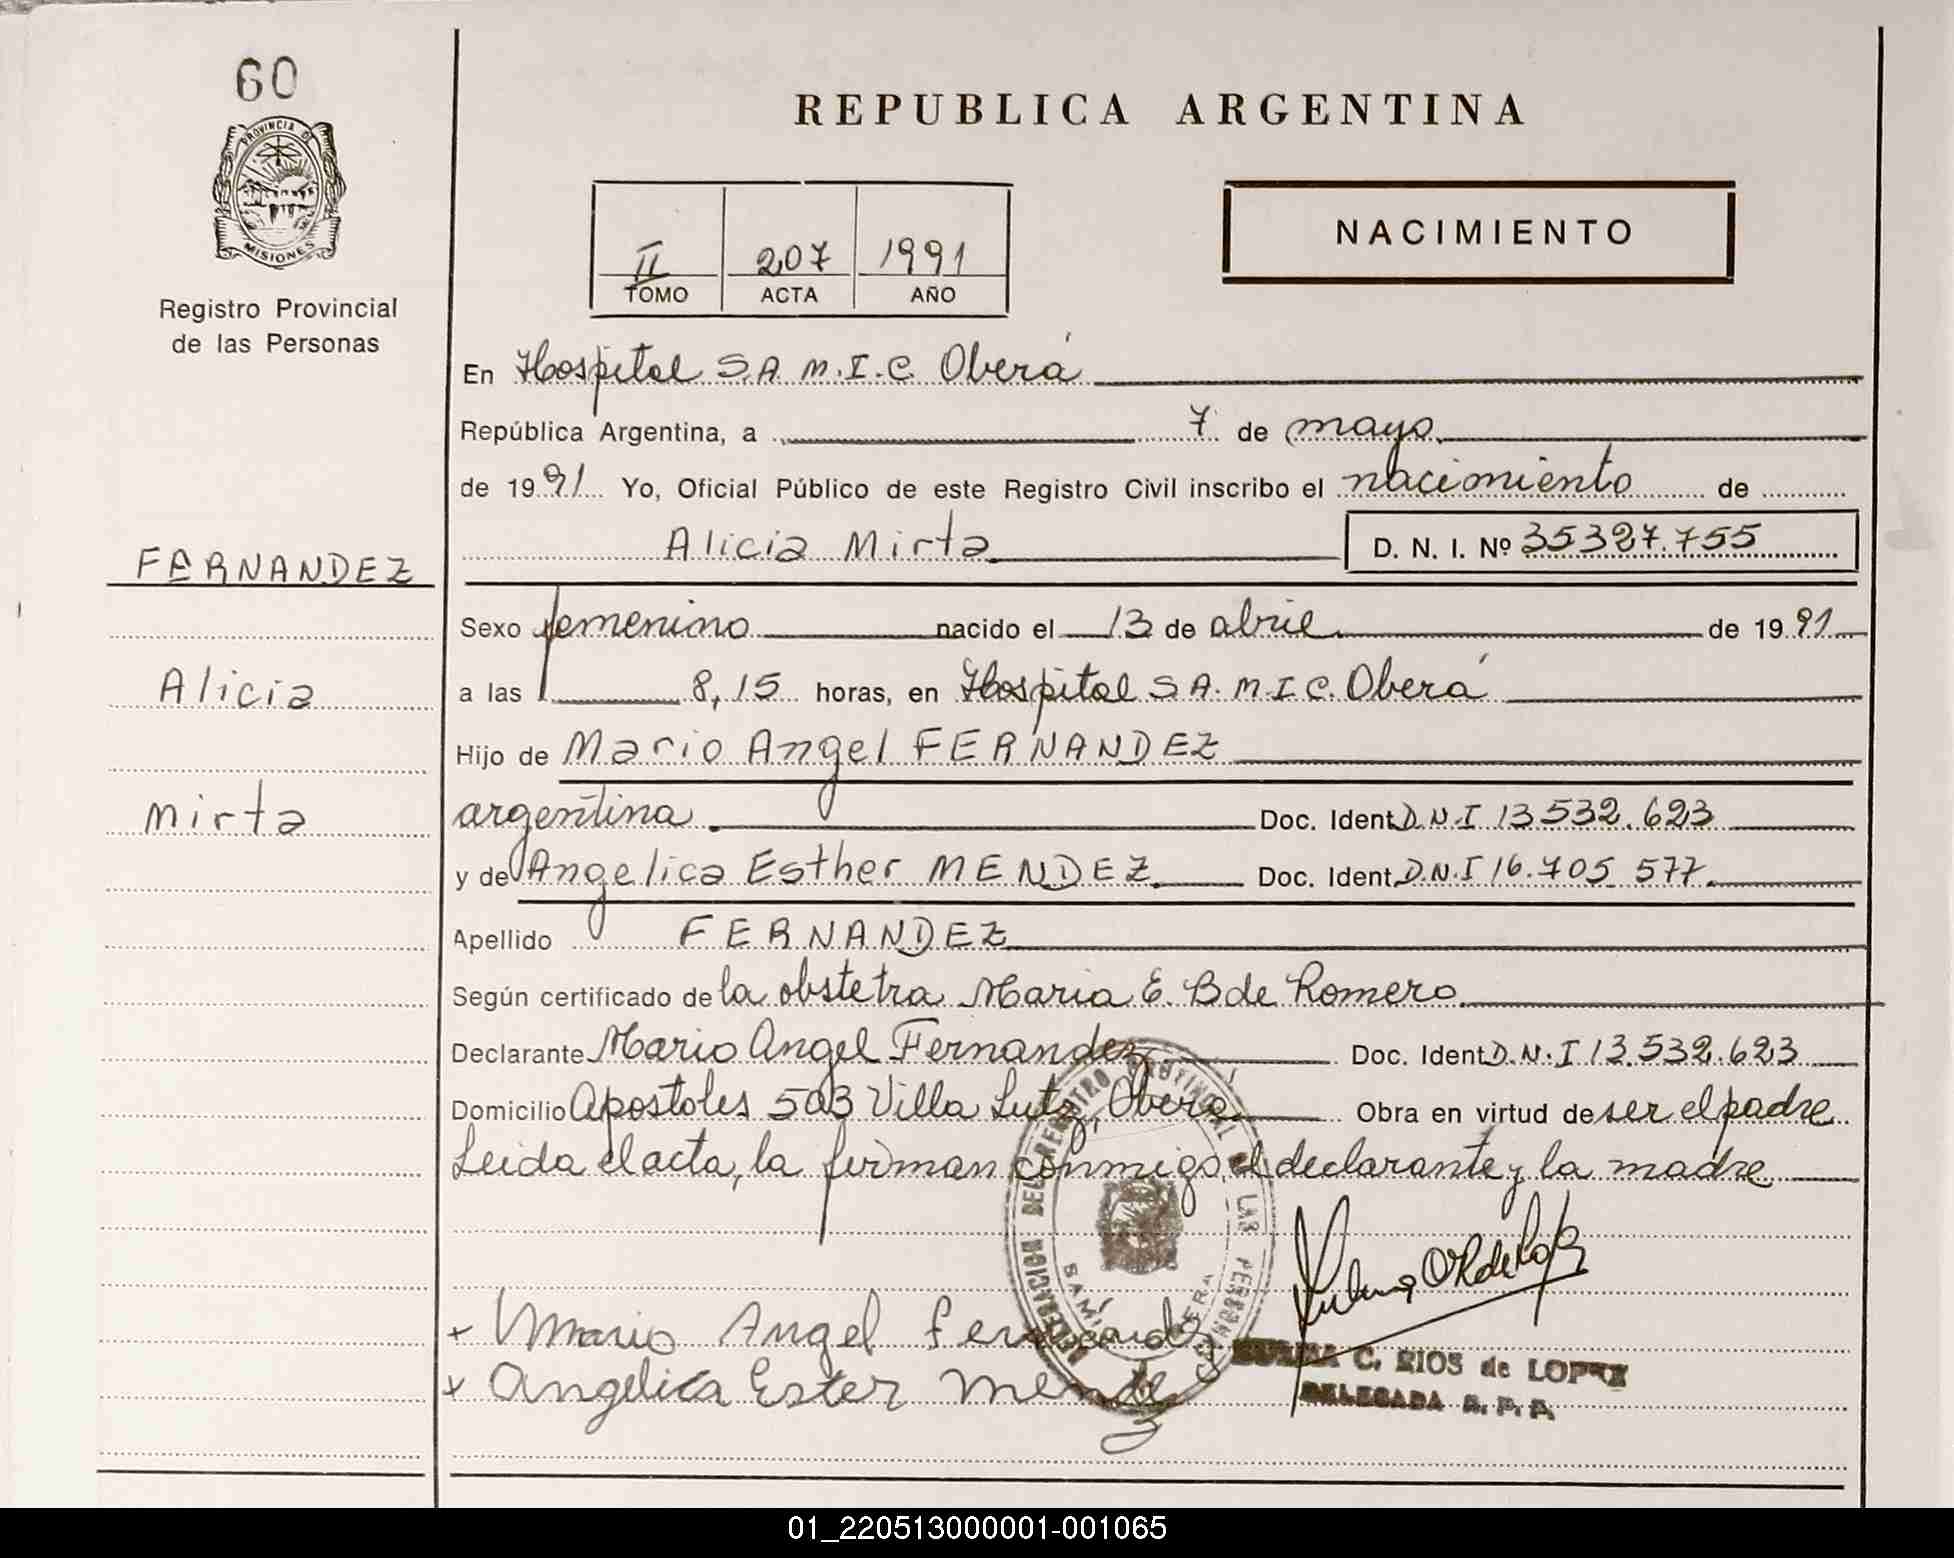 60
PROVINCIA DE
MISIONES
Registro Provincial
de las Personas
REPUBLICA ARGENTINA
II 207 1991
TOMO ACTA AÑO
NACIMIENTO
En Hospital S.A.M.I.C. Oberá
República Argentina, a 7 de mayo
de 1991 Yo, Oficial Público de este Registro Civil inscribo el nacimiento de
Alicia Mirta D. N. I. Nº 35327.755
FERNANDEZ
Sexo femenino nacido el 13 de abril de 1991
Alicia
a las 8,15 horas, en Hospital S.A.M.I.C. Oberá
Hijo de Mario Angel FERNANDEZ
Mirta
argentina Doc. Ident. D.N.I 13.532.623
y de Angelica Esther MENDEZ Doc. Ident. D.N.I 16.705 577
Apellido FERNANDEZ
Según certificado de la obstetra Maria E. B de Romero
Declarante Mario Angel Fernandez Doc. Ident. D.N.I 13.532.623
Domicilio Apostoles 503 Villa Lutz, Oberá Obra en virtud de ser el padre
Leida el acta, la firman conmigo, el declarante y la madre
DELEGACION DEL REGISTRO PROVINCIAL DE LAS PERSONAS
+ Mario Angel Fernández
+ Angelica Ester Mendez
C. RIOS de LOPEZ
DELEGADA R. P. P.
01_220513000001-001065